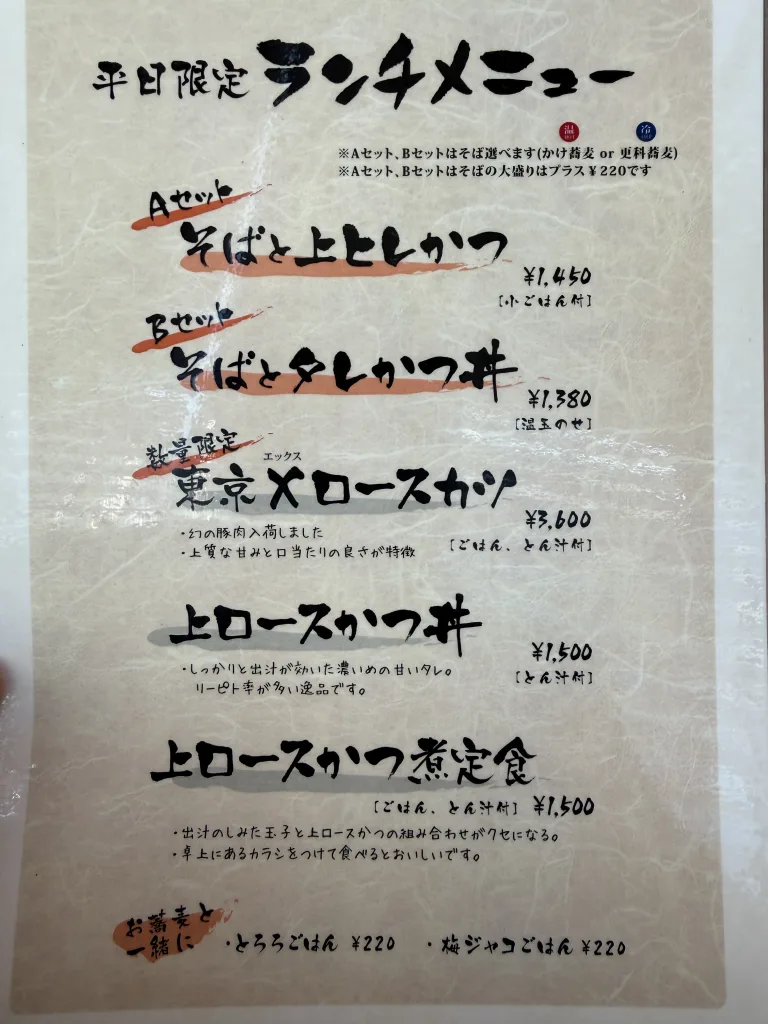 平日限定 ランチメニュー
温 冷
※Aセット、Bセットはそば選べます(かけ蕎麦 or 更科蕎麦)
※Aセット、Bセットはそばの大盛りはプラス¥220です
Aセット
そばと上ヒレかつ
¥1,450
[小ごはん付]
Bセット
そばとタレかつ丼
¥1,380
[温玉のせ]
数量限定
エックス
東京Xロースカツ
¥3,600
・幻の豚肉入荷しました
・上質な甘みと口当たりの良さが特徴
[ごはん、とん汁付]
上ロースかつ丼
¥1,500
・しっかりと出汁が効いた濃いめの甘いタレ。
[とん汁付]
リーピト率が多い逸品です。
上ロースかつ煮定食
[ごはん、とん汁付] ¥1,500
・出汁のしみた玉子と上ロースかつの組み合わせがクセになる。
・卓上にあるカラシをつけて食べるとおいしいです。
お蕎麦と
一緒に
・とろろごはん ¥220 ・梅ジャコごはん ¥220